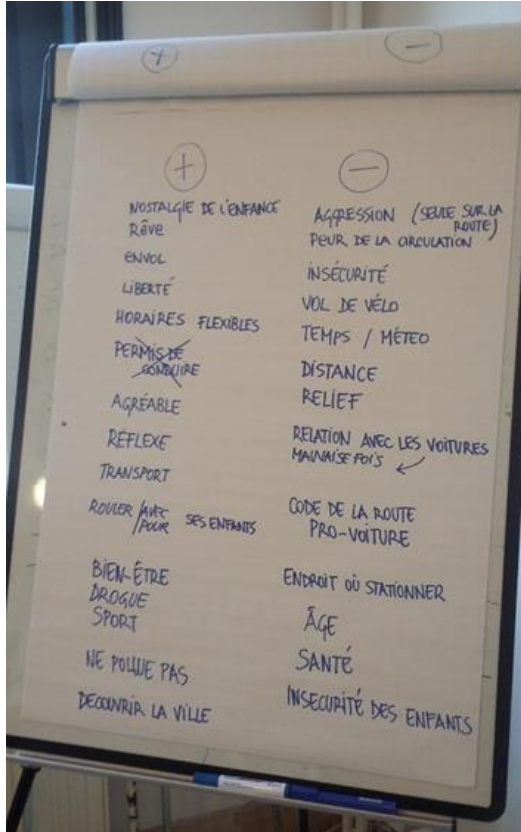 +
−
+
NOSTALGIE DE L'ENFANCE
Rêve
ENVOL
LIBERTÉ
HORAIRES FLEXIBLES
PERMIS DE
CONDUIRE
AGRÉABLE
RÉFLEXE
TRANSPORT
ROULER / AVEC
/ POUR SES ENFANTS
BIEN-ÊTRE
DROGUE
SPORT
NE POLLUE PAS
DECOUVRIR LA VILLE
−
AGGRESSION (SEULE SUR LA
ROUTE)
PEUR DE LA CIRCULATION
INSÉCURITÉ
VOL DE VÉLO
TEMPS / MÉTEO
DISTANCE
RELIEF
RELATION AVEC LES VOITURES
MAUVAISE FOIS
CODE DE LA ROUTE
PRO-VOITURE
ENDROIT OÙ STATIONNER
ÂGE
SANTÉ
INSECURITÉ DES ENFANTS